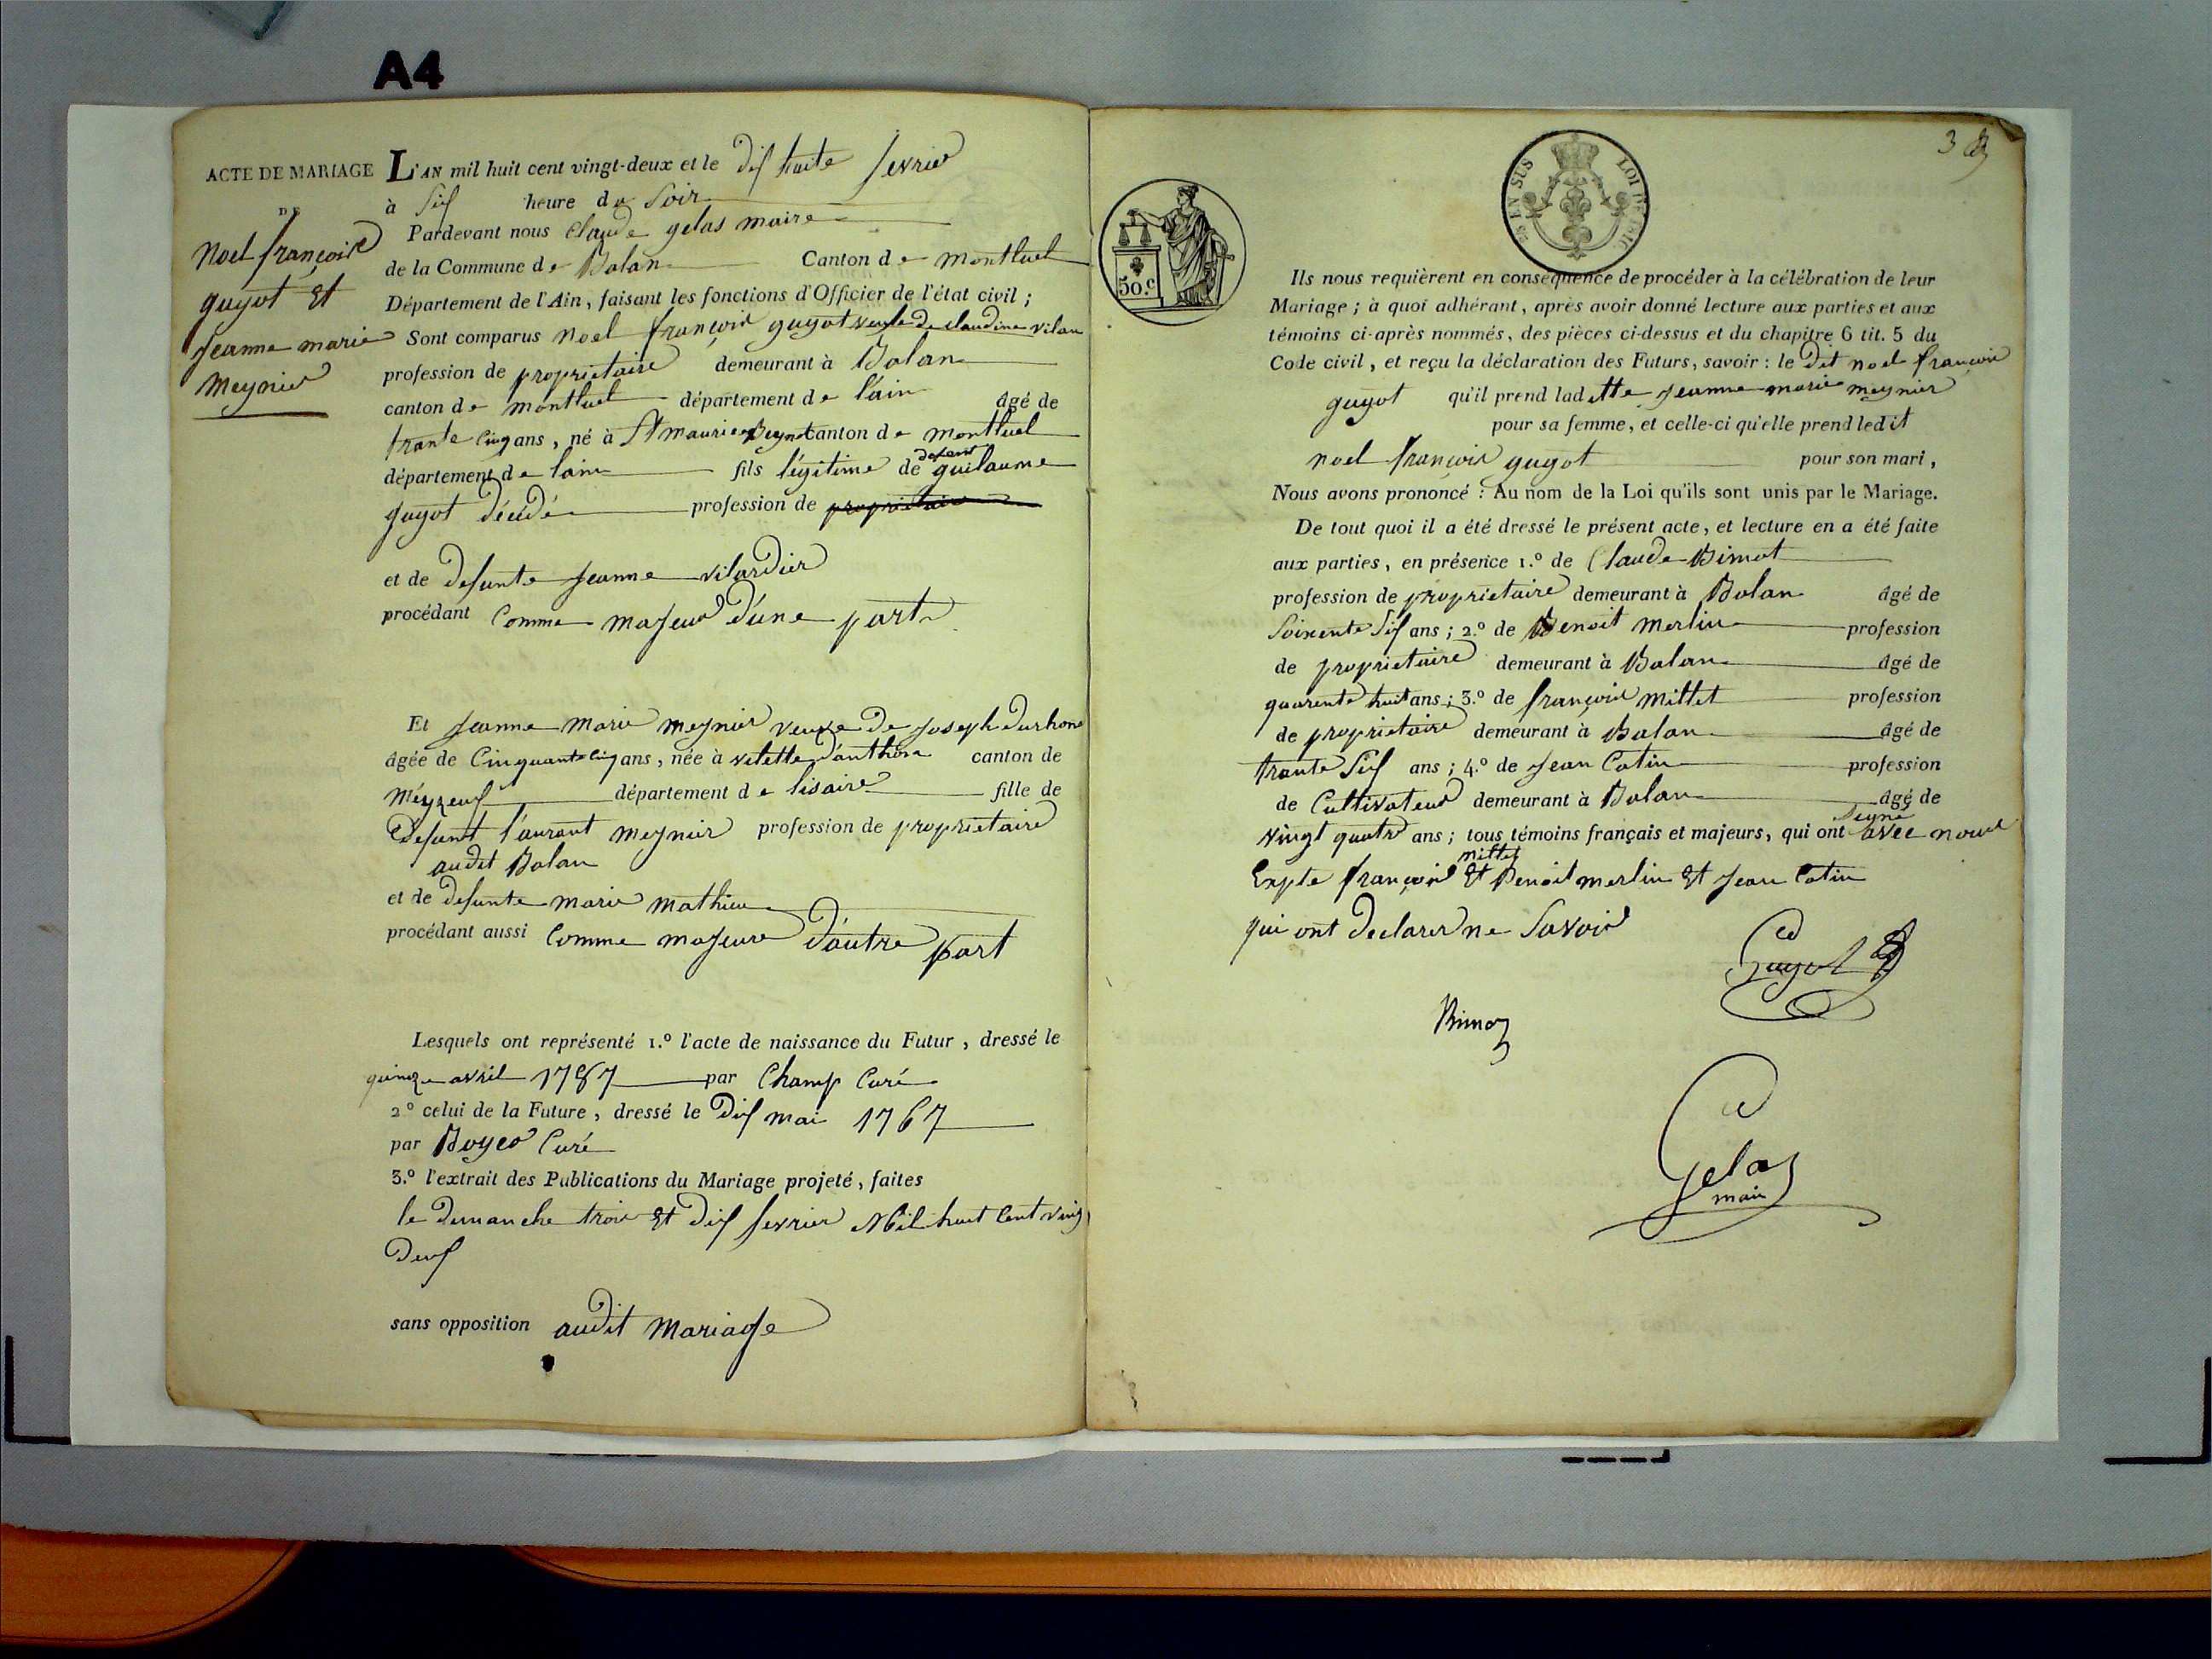 A4
ACTE DE MARIAGE
DE
Noel françois
guyot Et
Jeanne marie
Meynier
L'AN mil huit cent vingt-deux et le dix huite fevrier
à Six heure du Soir
Pardevant nous Claude gelas maire
de la Commune de Balan Canton de montluel
Département de l'Ain, faisant les fonctions d'Officier de l'état civil ;
Sont comparus Noel françois guyot veufe de claudine vilan
profession de proprietaire demeurant à Balan
canton de montluel département de l'ain âgé de
trante Cinq ans, né à St maurice Beynot canton de montluel
département de lain fils légitime de defent guilaume
guyot décédé profession de proprietaire
et de defunte Jeanne vilardier
procédant Comme majeur d'une part
Et Jeanne Marie meynier veuve de Joseph durhone
âgée de Cinquante Cinq ans, née à vilette d'anthon canton de
Méyzeuf département de lisaire fille de
Defunt l'aurant meynier profession de proprietaire
audit Balan
et de defunte marie mathieu
procédant aussi Comme majeure d'autre part
Lesquels ont représenté 1.º l'acte de naissance du Futur, dressé le
quinze avril 1787 par Champ Curé
2º celui de la Future, dressé le Dix mai 1767
par Boyer Curé
3.º l'extrait des Publications du Mariage projeté, faites
le dimanche trois Et Dix fevrier Mil huit Cent ving
Deux
sans opposition audit Mariage
38
25 EN SUS LOI DE 1816
50.c
Ils nous requièrent en conséquence de procéder à la célébration de leur
Mariage ; à quoi adhérant, après avoir donné lecture aux parties et aux
témoins ci-après nommés, des pièces ci-dessus et du chapitre 6 tit. 5 du
Code civil, et reçu la déclaration des Futurs, savoir : le dit noel françois
guyot qu'il prend ladette Jeanne marie meynier
pour sa femme, et celle-ci qu'elle prend ledit
noel françois guyot pour son mari,
Nous avons prononcé : Au nom de la Loi qu'ils sont unis par le Mariage.
De tout quoi il a été dressé le présent acte, et lecture en a été faite
aux parties, en présence 1.º de Claude Bimot
profession de proprietaire demeurant à Balan âgé de
Soixente Six ans ; 2.º de Benoit merlin profession
de proprietaire demeurant à Balan âgé de
quarente huit ans ; 3.º de françois millet profession
de proprietaire demeurant à Balan âgé de
trante Six ans ; 4.º de Jean Catin profession
de Cultivateur demeurant à Balan âgé de
vingt quatr ans ; tous témoins français et majeurs, qui ont signé avec nous
Expte françois millet Et Benoit merlin Et Jean Catin
qui ont declarer ne Savoir
Guyot
Bimoz
Gelas
maire